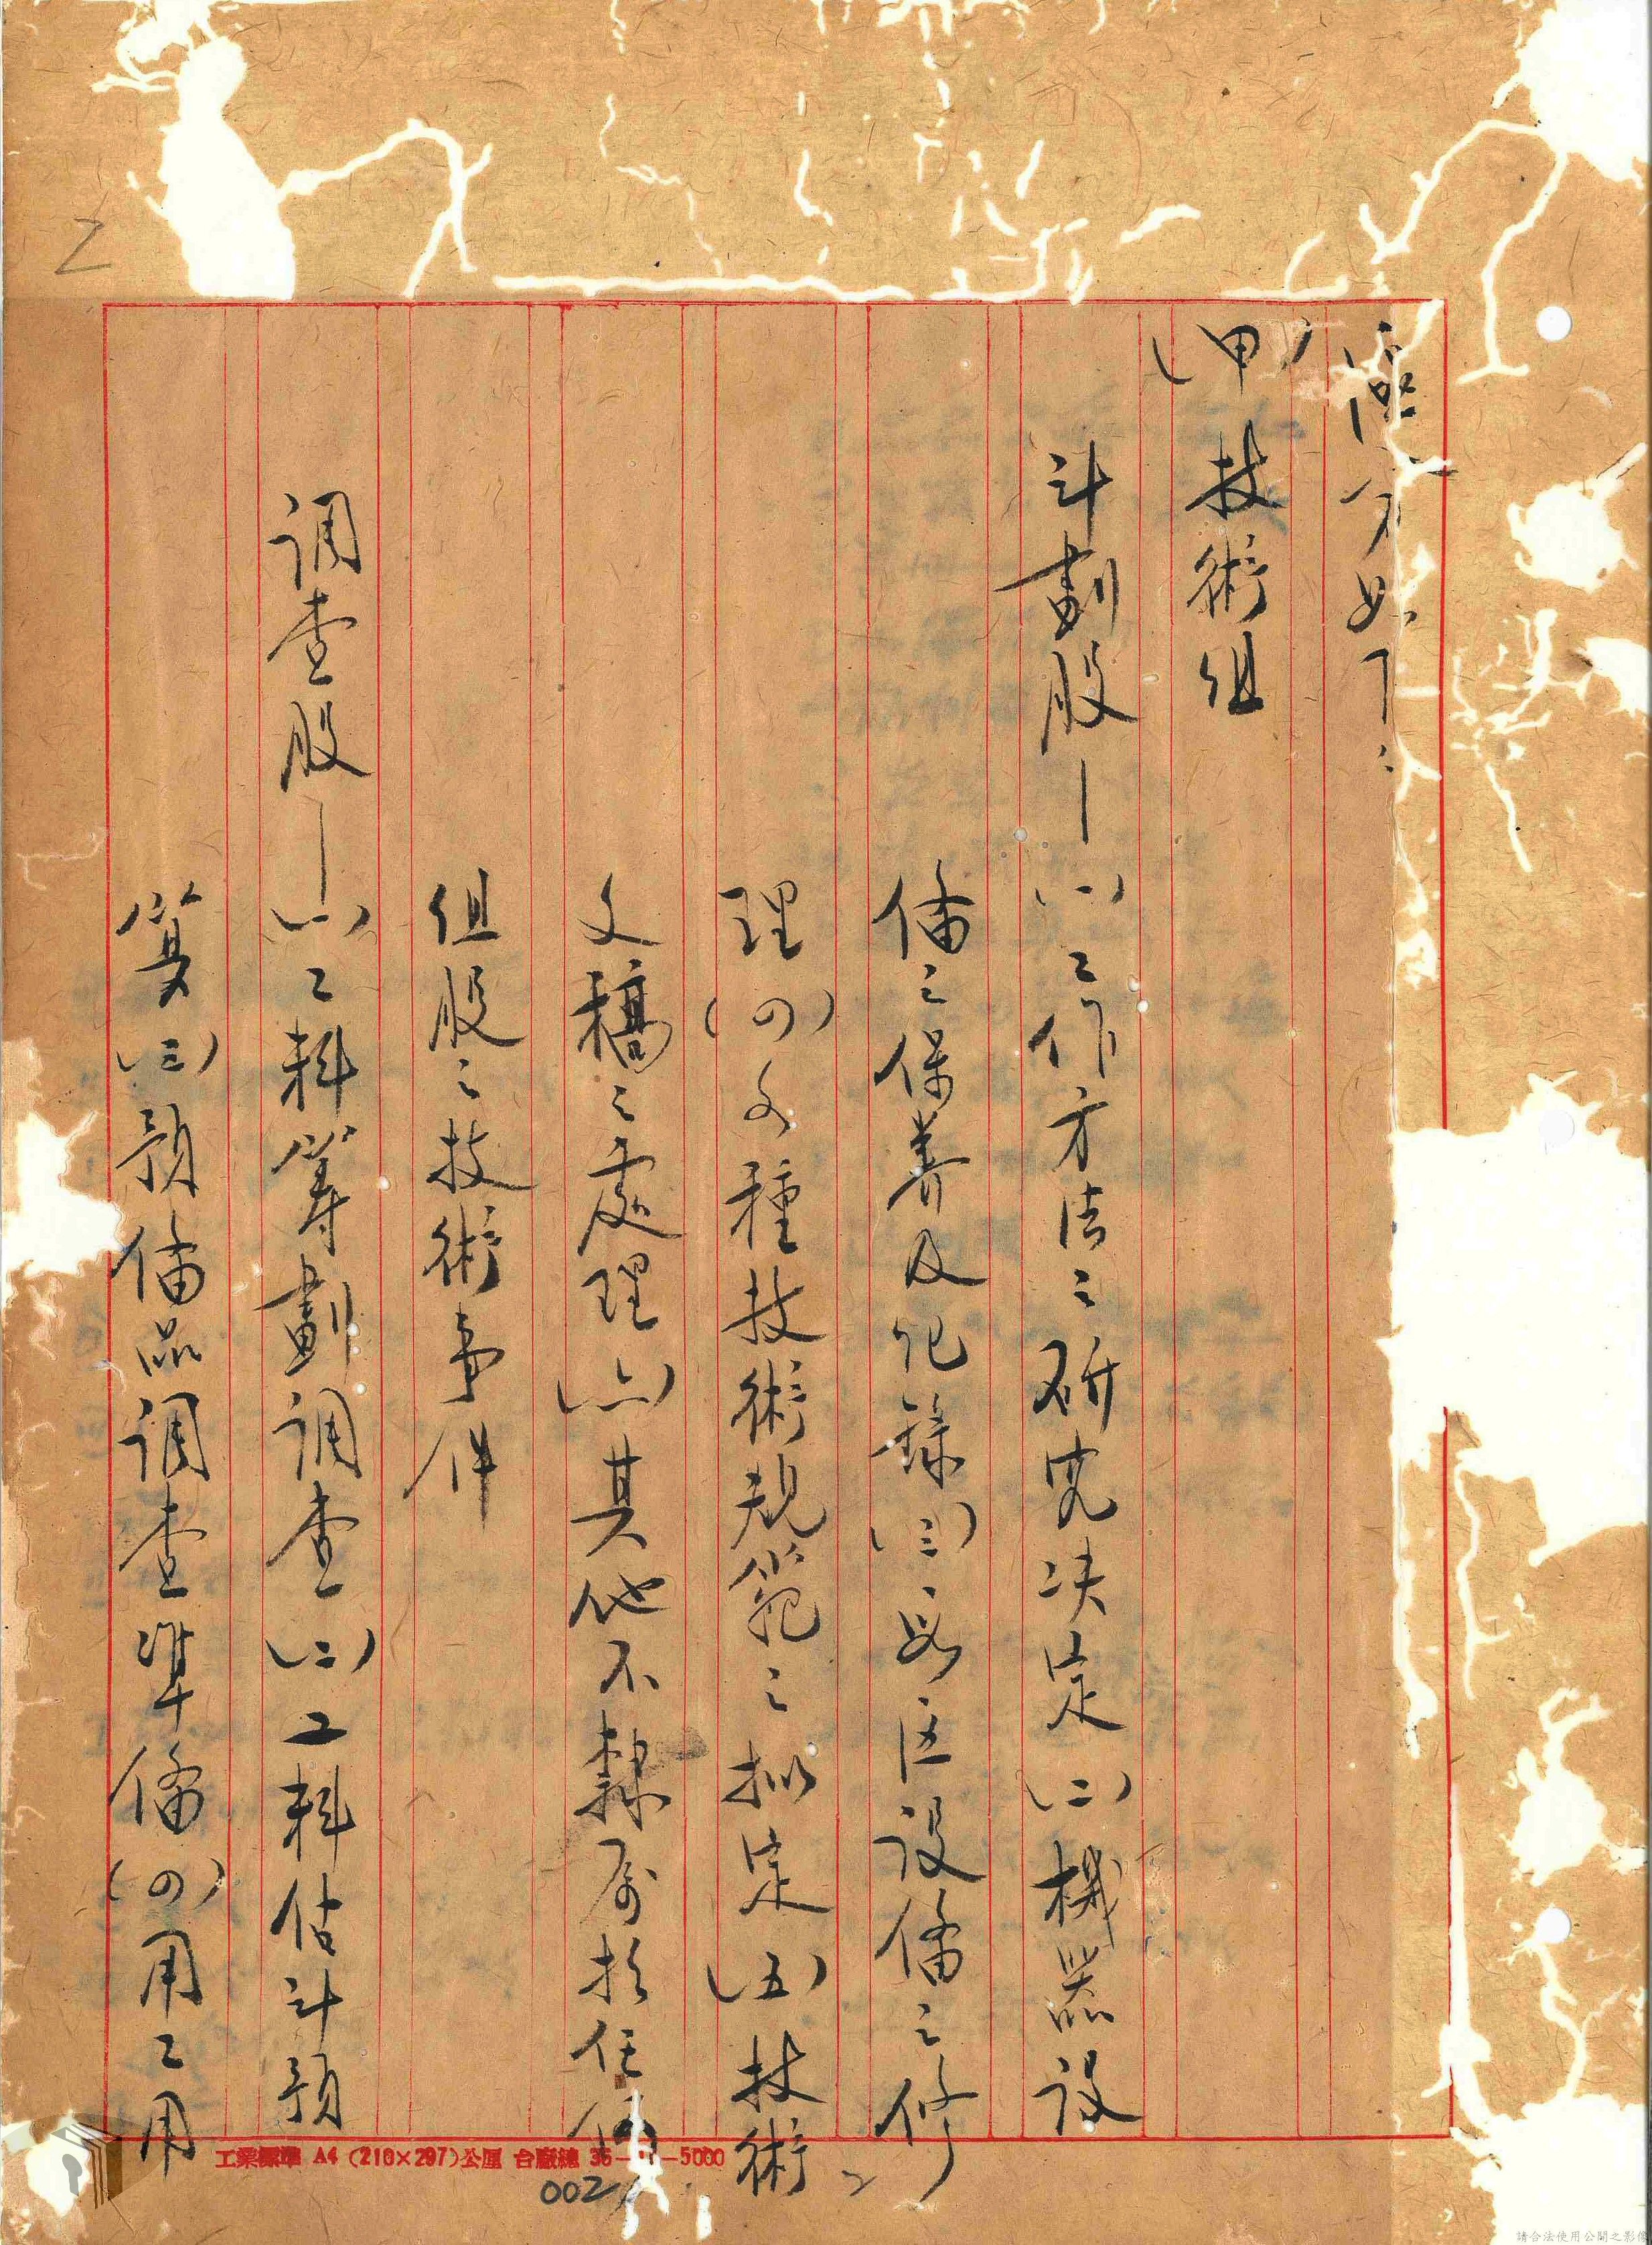 區分如下：
（甲）技術組
計劃股—（一）工作方法之研究決定（二）機器設
備之保養及記錄（三）每区設備之修
理（四）各種技術規範之拟定（五）技術
文稿之處理（六）其他不隸屬於任何
组股之技術事件
调查股—（一）工料籌劃调查（二）工料估計預
算（三）預備品调查準備（四）用工用
工業標準 A4 (210×297)公厘 台廠總 35- -5000
002
2
Z
請合法使用公開之影像